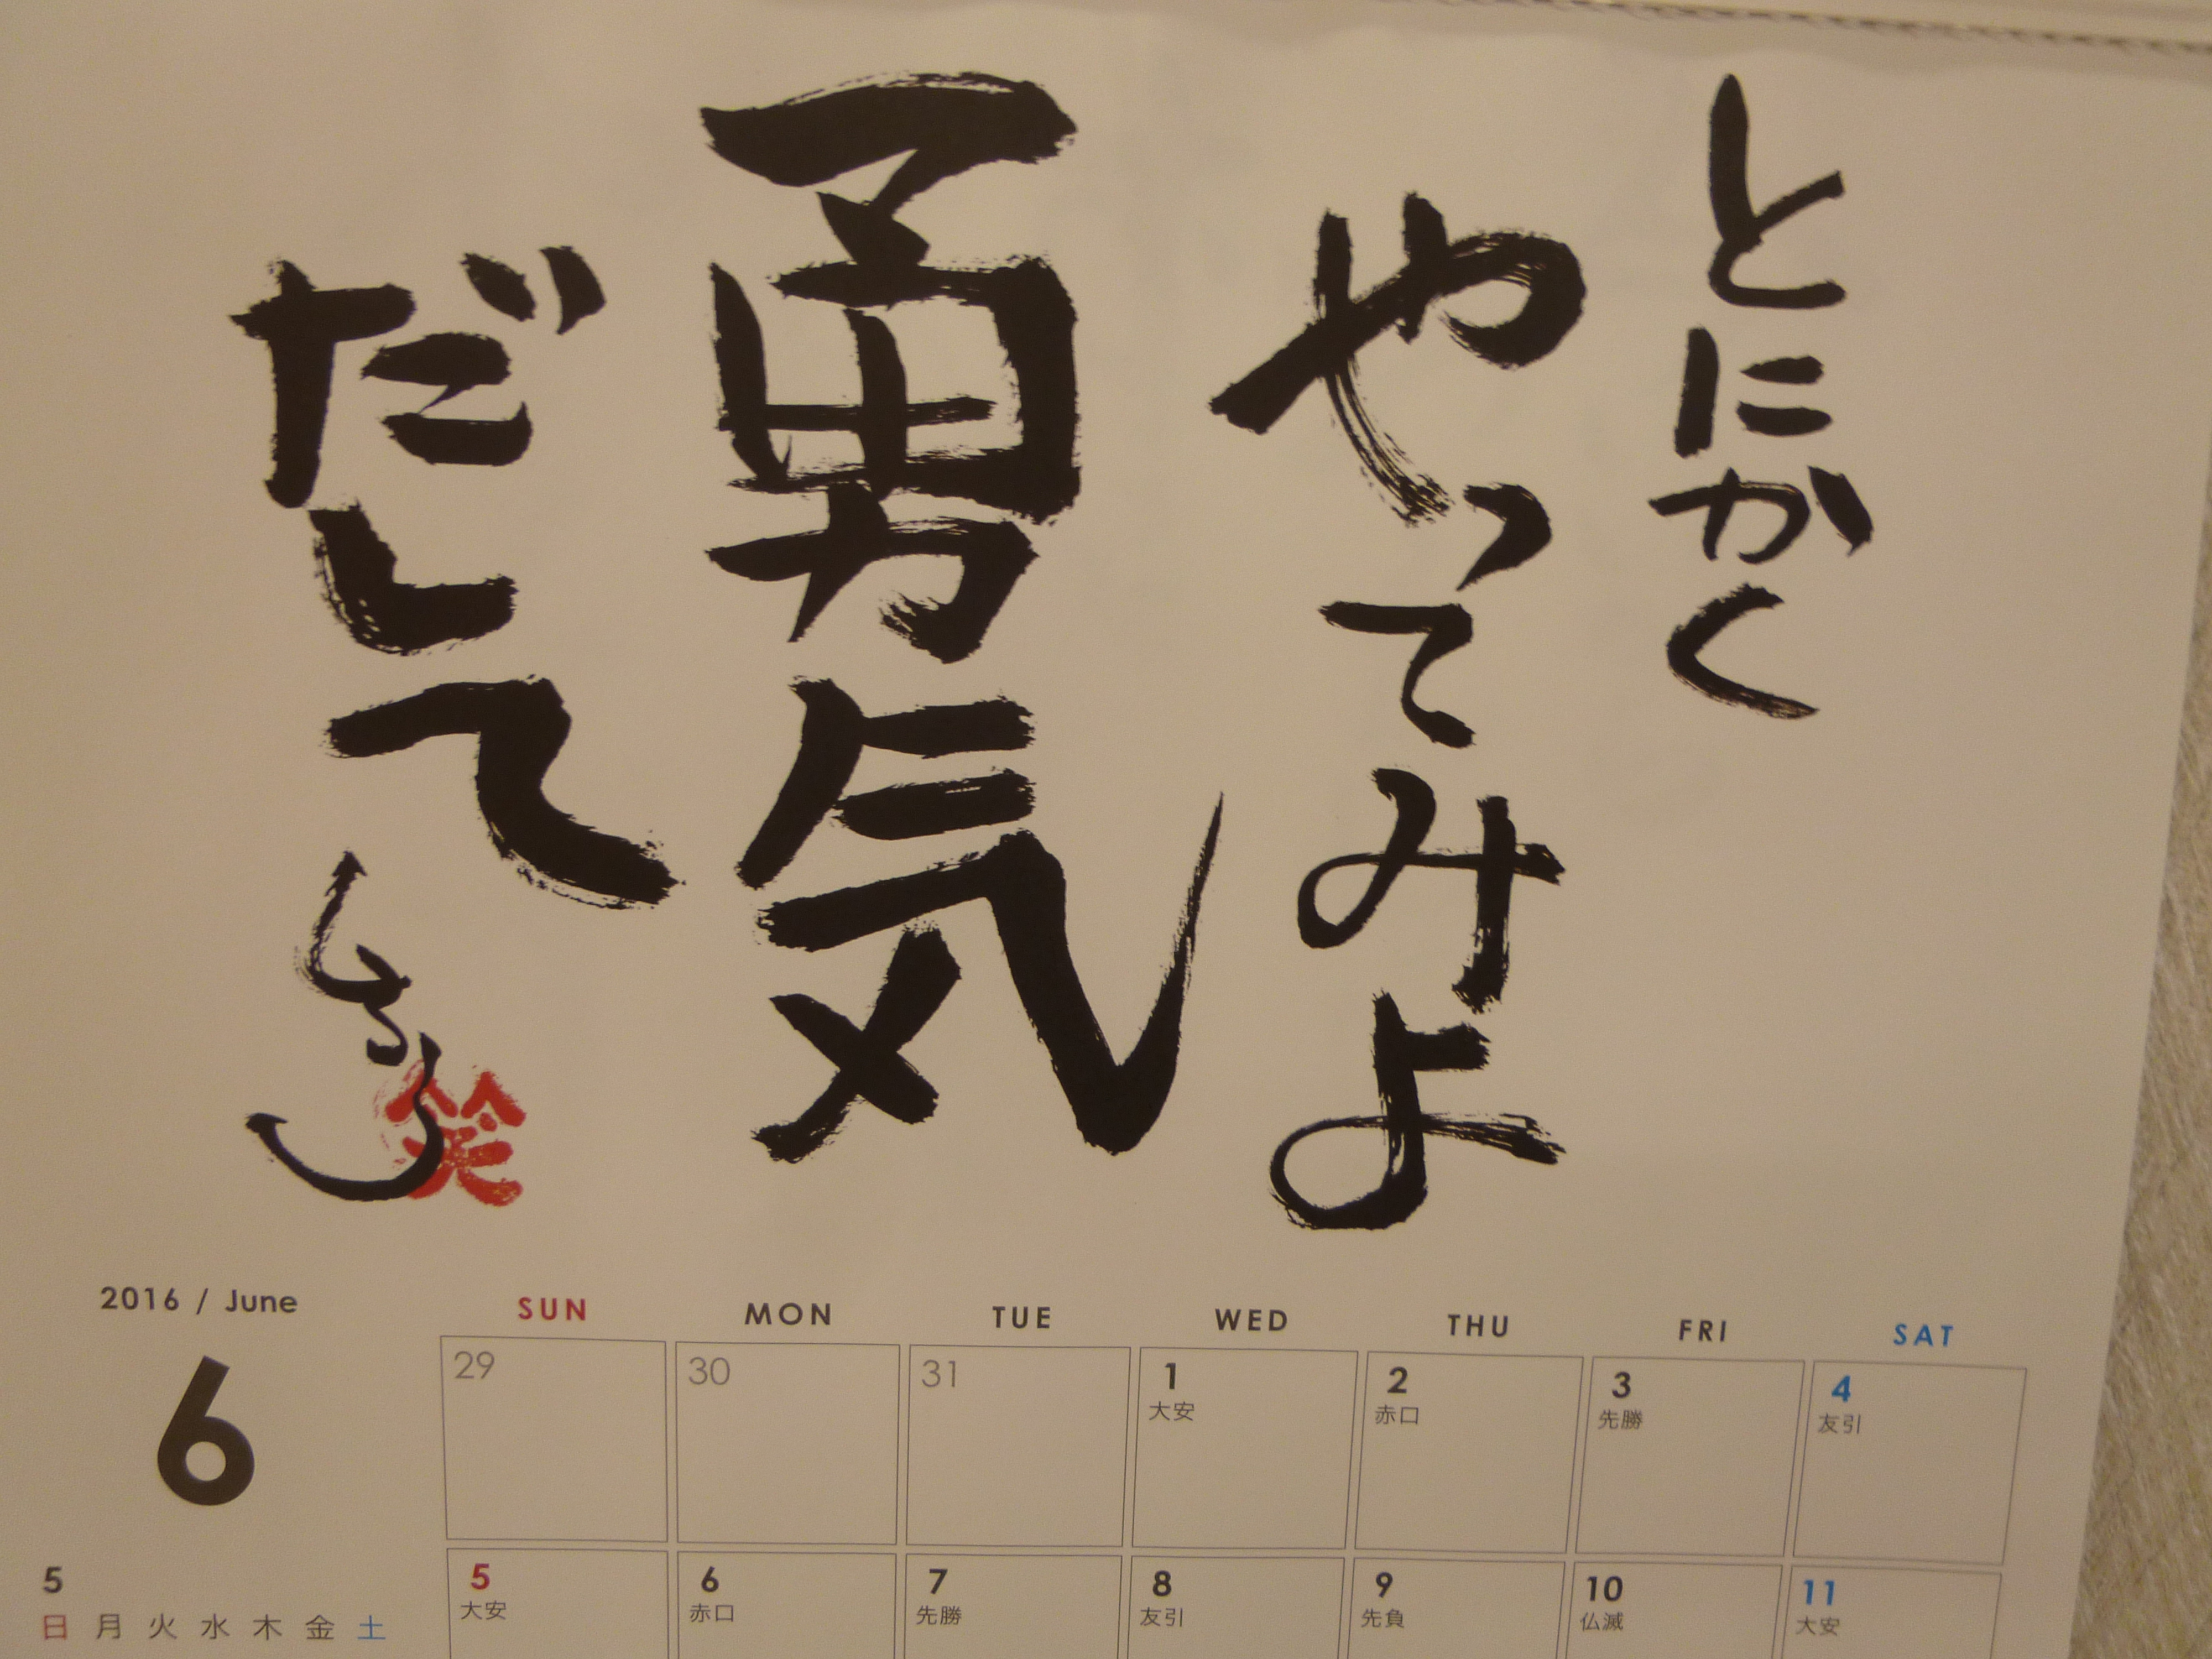 とにかく
やってみよ
勇気
だして
笑
2016 / June
6
SUN MON TUE WED THU FRI SAT
29 30 31 1 2 3 4
大安 赤口 先勝 友引
5 6 7 8 9 10 11
大安 赤口 先勝 友引 先負 仏滅 大安
5
日 月 火 水 木 金 土